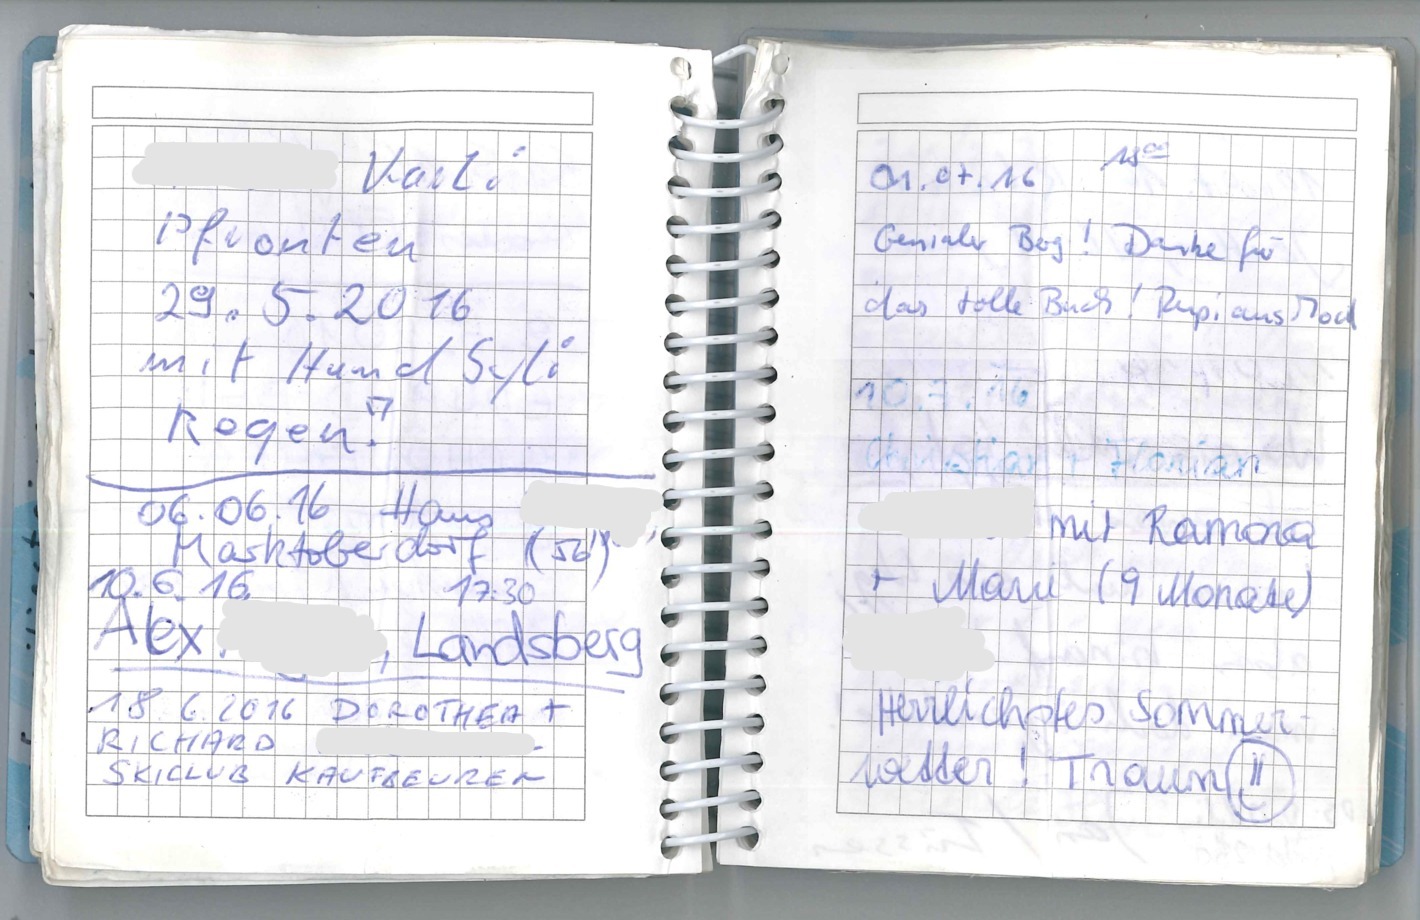 Karli
Pfronten
29.5.2016
mit Hund Syli
Regen!
06.06.16 Hans
Marktoberdorf (56')
10.6.16. 17:30
Alex , Landsberg
18.6.2016 DOROTHEA +
RICHARD
SKICLUB KAUFBEUREN
01.07.16
Genialer Berg! Danke für
das tolle Buch! Rupi aus Mod
10.7.16
Christian + Florian
mit Ramona
+ Marie (9 Monate)
Herrlichstes Sommer-
wetter! Traum